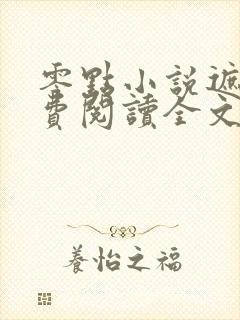 零點小說遮
費閱讀全文
養怡之福